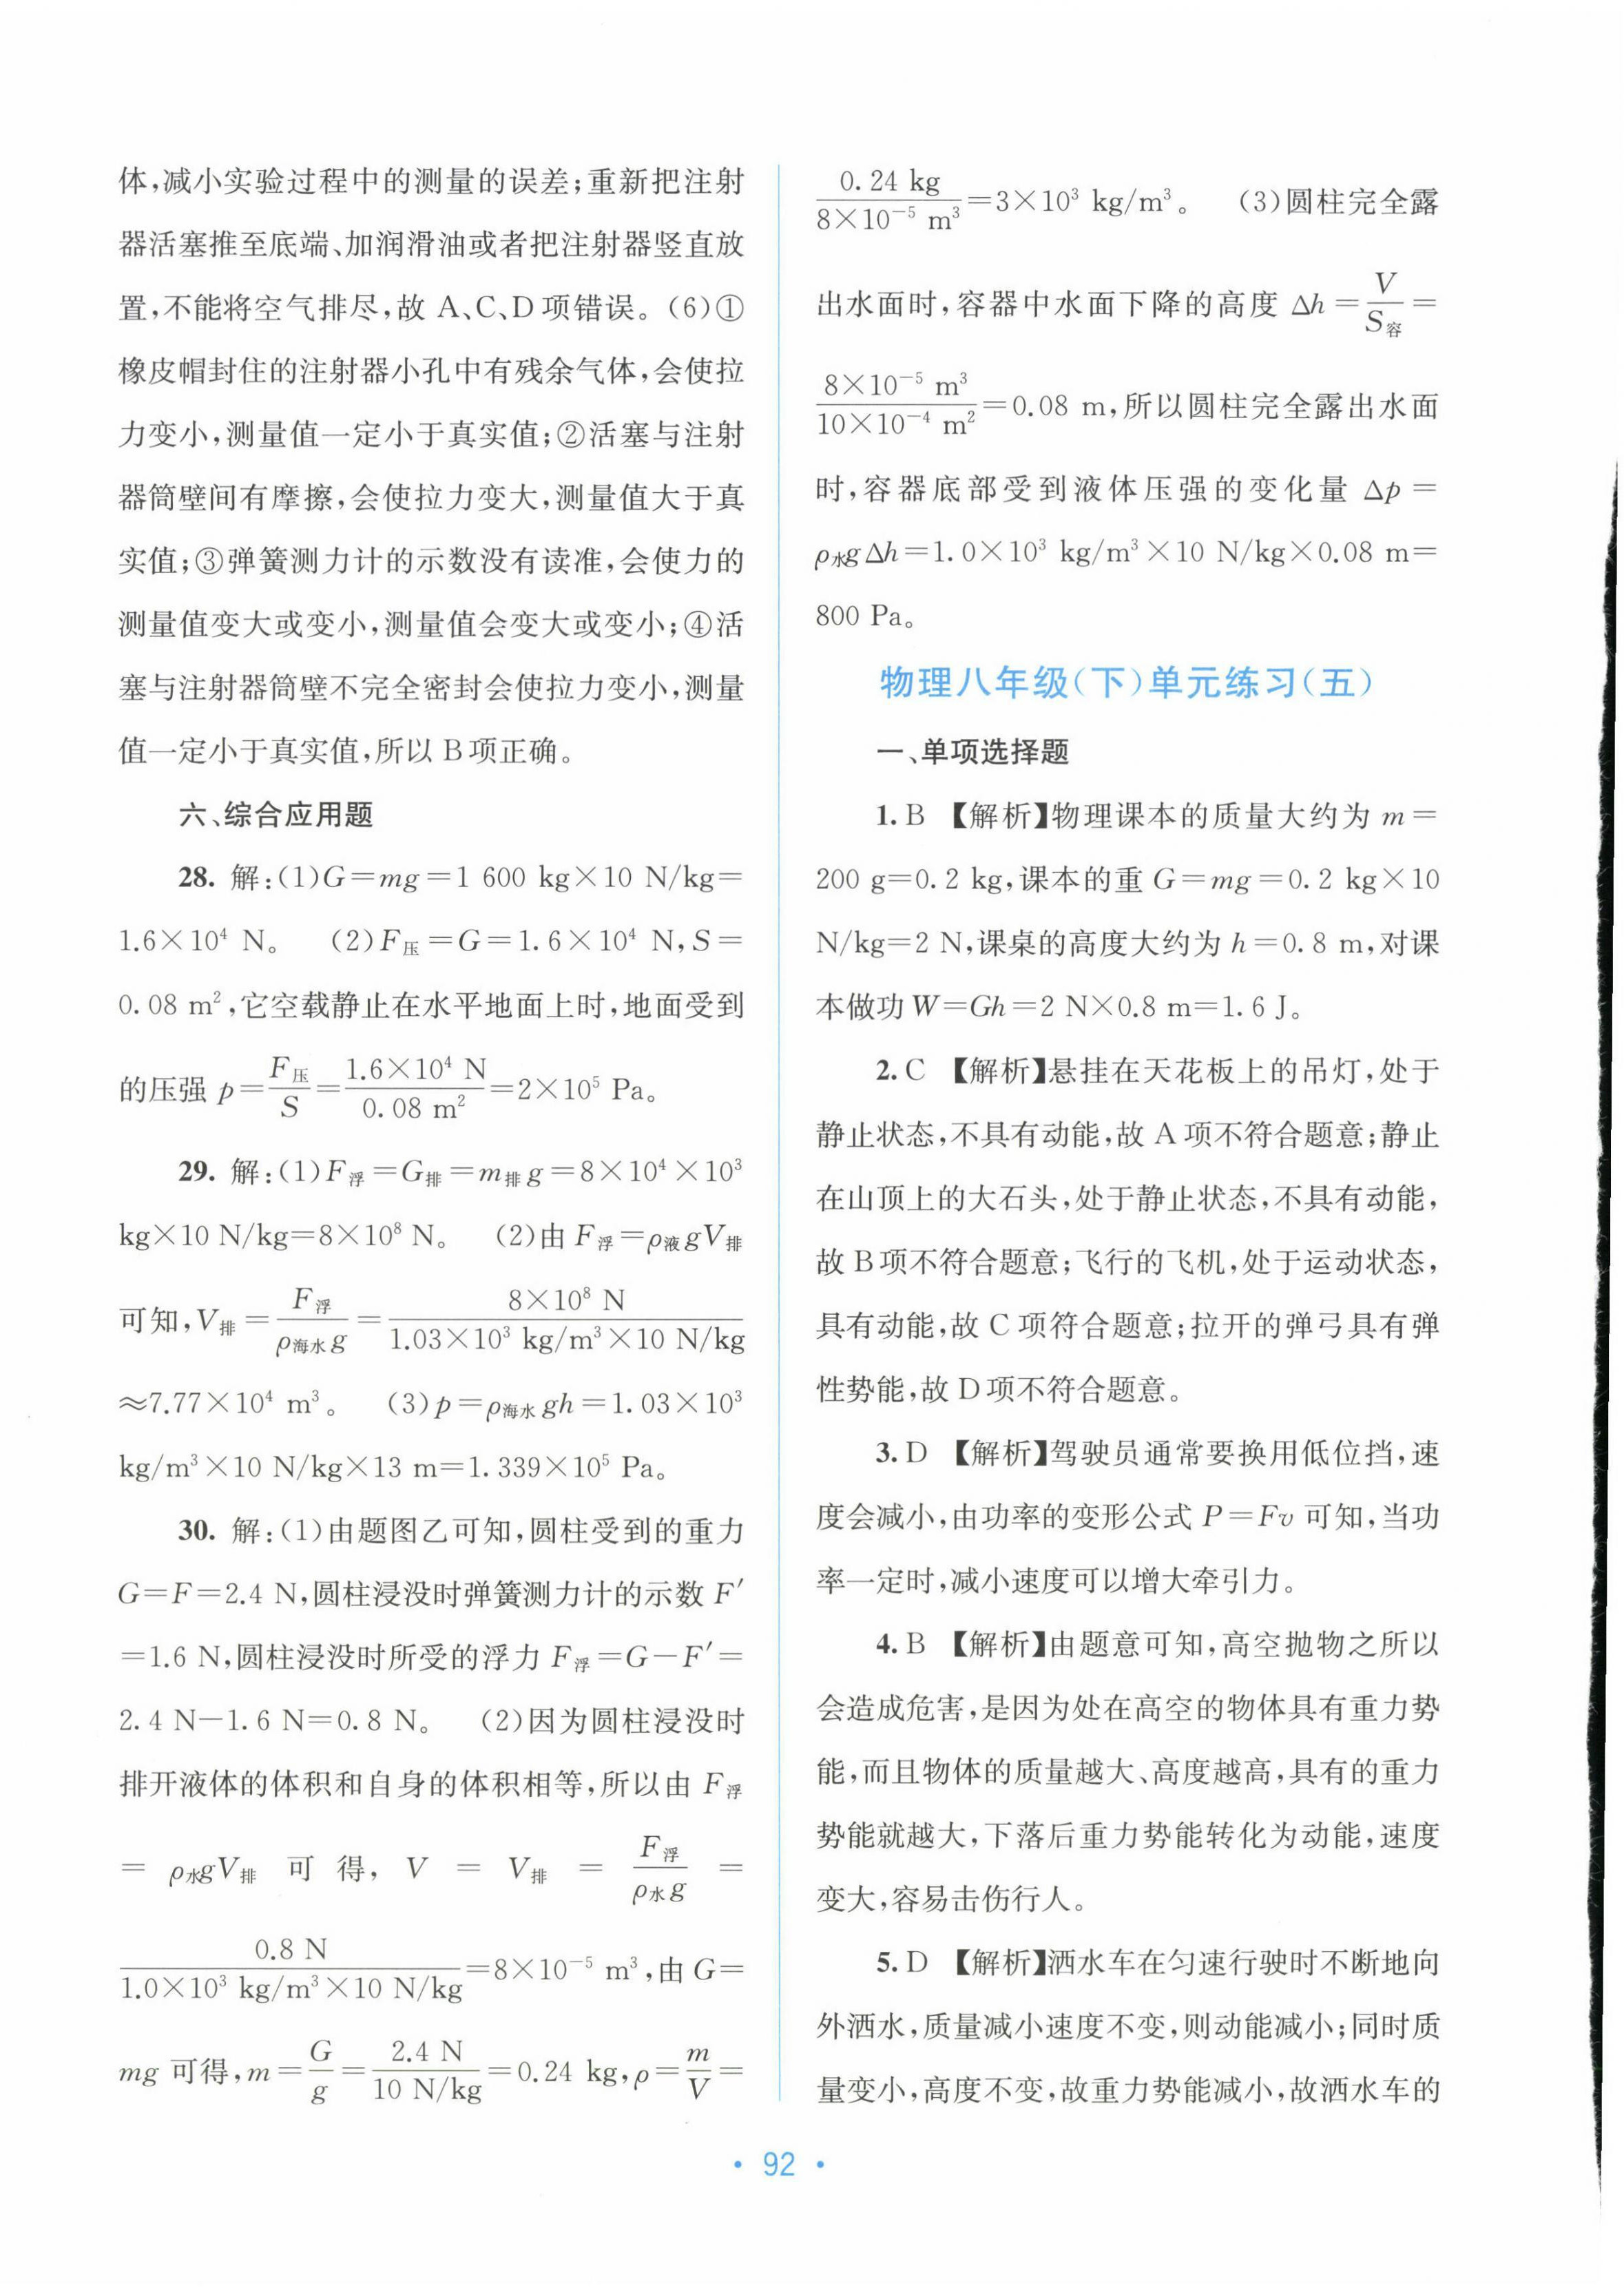 体,减小实验过程中的测量的误差;重新把注射
器活塞推至底端、加润滑油或者把注射器竖直放
置,不能将空气排尽,故 A、C、D 项错误。(6)①
橡皮帽封住的注射器小孔中有残余气体,会使拉
力变小,测量值一定小于真实值;②活塞与注射
器筒壁间有摩擦,会使拉力变大,测量值大于真
实值;③弹簧测力计的示数没有读准,会使力的
测量值变大或变小,测量值会变大或变小;④活
塞与注射器筒壁不完全密封会使拉力变小,测量
值一定小于真实值,所以 B 项正确。
六、综合应用题
28. 解:(1)G=mg=1 600 kg×10 N/kg=
1.6×10⁴ N。 (2)F压=G=1.6×10⁴ N,S=
0.08 m²,它空载静止在水平地面上时,地面受到
的压强 p=F压/S=1.6×10⁴ N/0.08 m²=2×10⁵ Pa。
29. 解:(1)F浮=G排=m排g=8×10⁴×10³
kg×10 N/kg=8×10⁸ N。 (2)由 F浮=ρ液gV排
可知,V排=F浮/ρ海水g=8×10⁸ N/1.03×10³ kg/m³×10 N/kg
≈7.77×10⁴ m³。 (3)p=ρ海水gh=1.03×10³
kg/m³×10 N/kg×13 m=1.339×10⁵ Pa。
30. 解:(1)由题图乙可知,圆柱受到的重力
G=F=2.4 N,圆柱浸没时弹簧测力计的示数 F′
=1.6 N,圆柱浸没时所受的浮力 F浮=G-F′=
2.4 N-1.6 N=0.8 N。 (2)因为圆柱浸没时
排开液体的体积和自身的体积相等,所以由 F浮
= ρ水gV排 可 得, V = V排 = F浮/ρ水g =
0.8 N/1.0×10³ kg/m³×10 N/kg=8×10⁻⁵ m³,由 G=
mg 可得,m=G/g=2.4 N/10 N/kg=0.24 kg,ρ=m/V=
0.24 kg/8×10⁻⁵ m³=3×10³ kg/m³。 (3)圆柱完全露
出水面时,容器中水面下降的高度 Δh=V/S容=
8×10⁻⁵ m³/10×10⁻⁴ m²=0.08 m,所以圆柱完全露出水面
时,容器底部受到液体压强的变化量 Δp=
ρ水gΔh=1.0×10³ kg/m³×10 N/kg×0.08 m=
800 Pa。
物理八年级(下)单元练习(五)
一、单项选择题
1. B 【解析】物理课本的质量大约为 m=
200 g=0.2 kg,课本的重 G=mg=0.2 kg×10
N/kg=2 N,课桌的高度大约为 h=0.8 m,对课
本做功 W=Gh=2 N×0.8 m=1.6 J。
2. C 【解析】悬挂在天花板上的吊灯,处于
静止状态,不具有动能,故 A 项不符合题意;静止
在山顶上的大石头,处于静止状态,不具有动能,
故 B 项不符合题意;飞行的飞机,处于运动状态,
具有动能,故 C 项符合题意;拉开的弹弓具有弹
性势能,故 D 项不符合题意。
3. D 【解析】驾驶员通常要换用低位挡,速
度会减小,由功率的变形公式 P=Fv 可知,当功
率一定时,减小速度可以增大牵引力。
4. B 【解析】由题意可知,高空抛物之所以
会造成危害,是因为处在高空的物体具有重力势
能,而且物体的质量越大、高度越高,具有的重力
势能就越大,下落后重力势能转化为动能,速度
变大,容易击伤行人。
5. D 【解析】洒水车在匀速行驶时不断地向
外洒水,质量减小速度不变,则动能减小;同时质
量变小,高度不变,故重力势能减小,故洒水车的
• 92 •